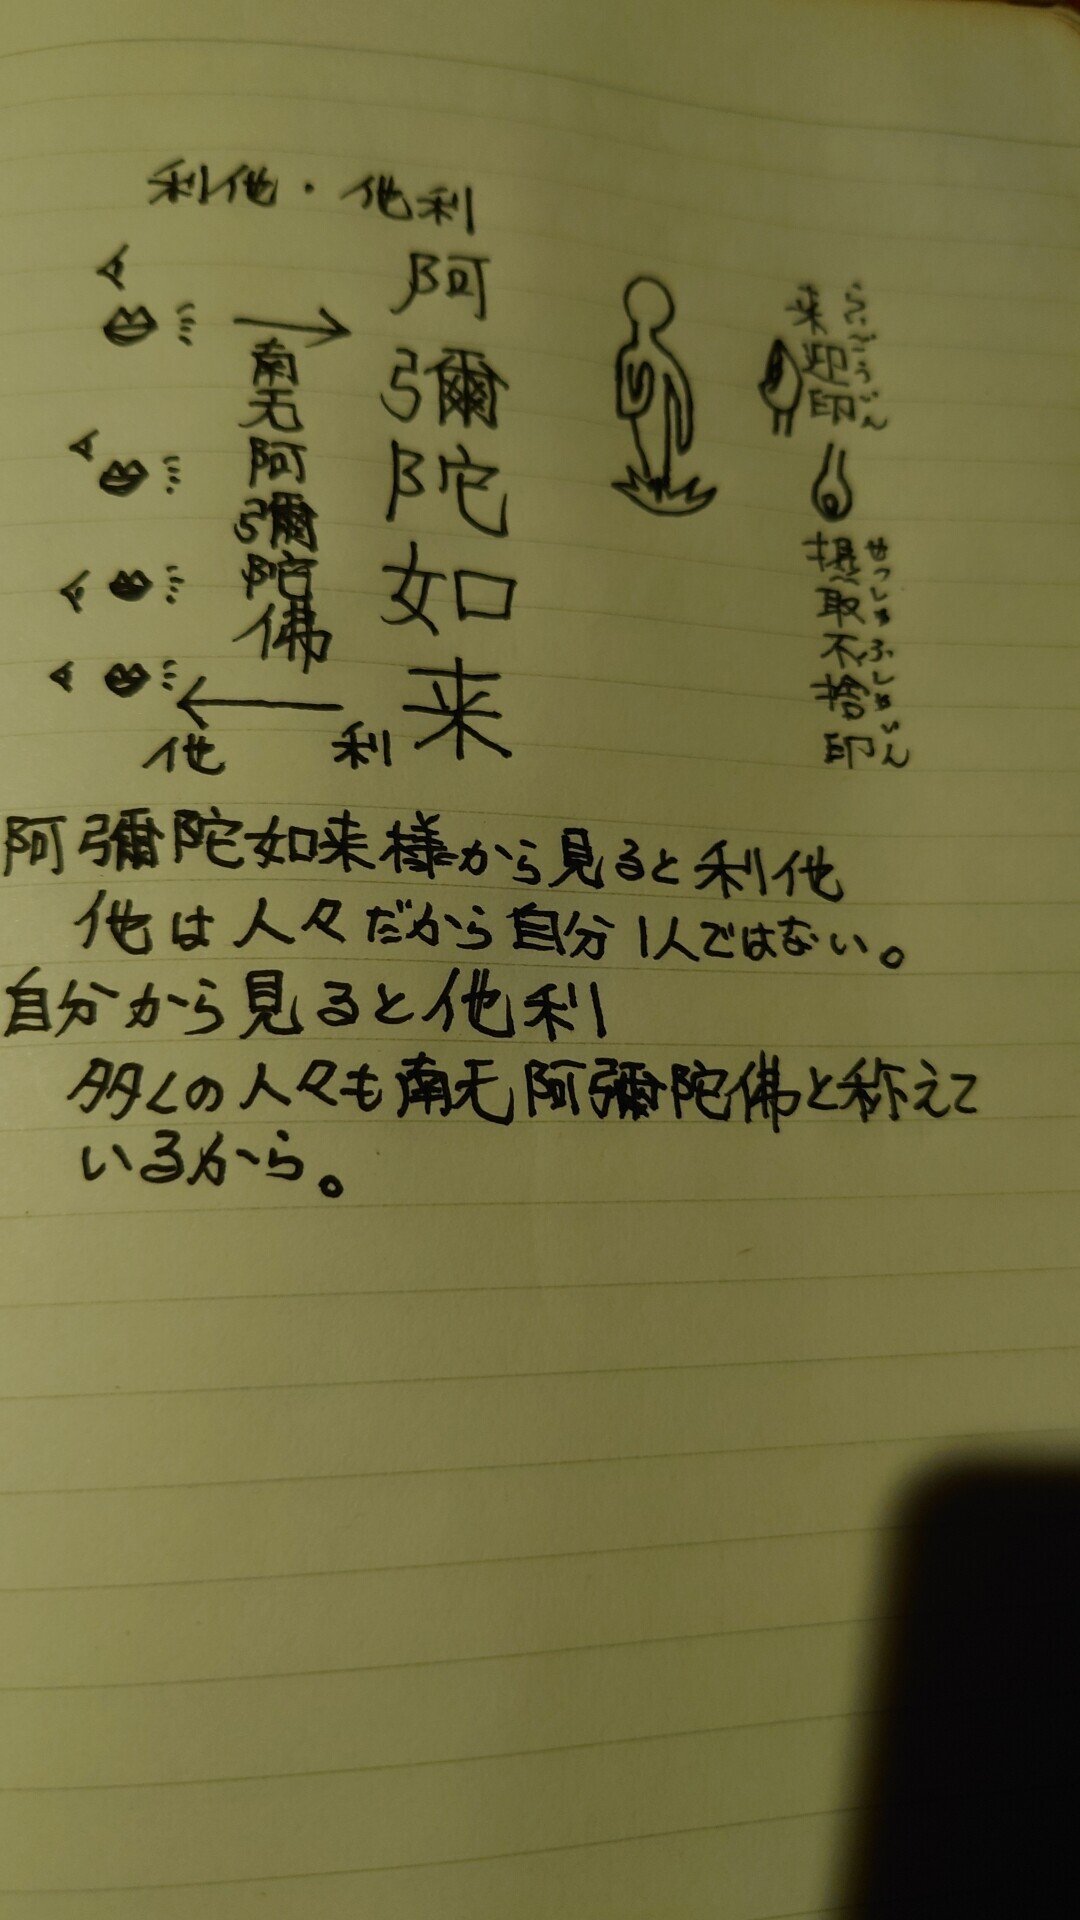 利他・他利
阿彌陀如来
南无阿彌陀佛
他 利
来迎印
らいごういん
摂取不捨印
せっしゅふしゃいん
阿彌陀如来様から見ると利他
他は人々だから自分1人ではない。
自分から見ると他利
多くの人々も南无阿彌陀佛と称えて
いるから。